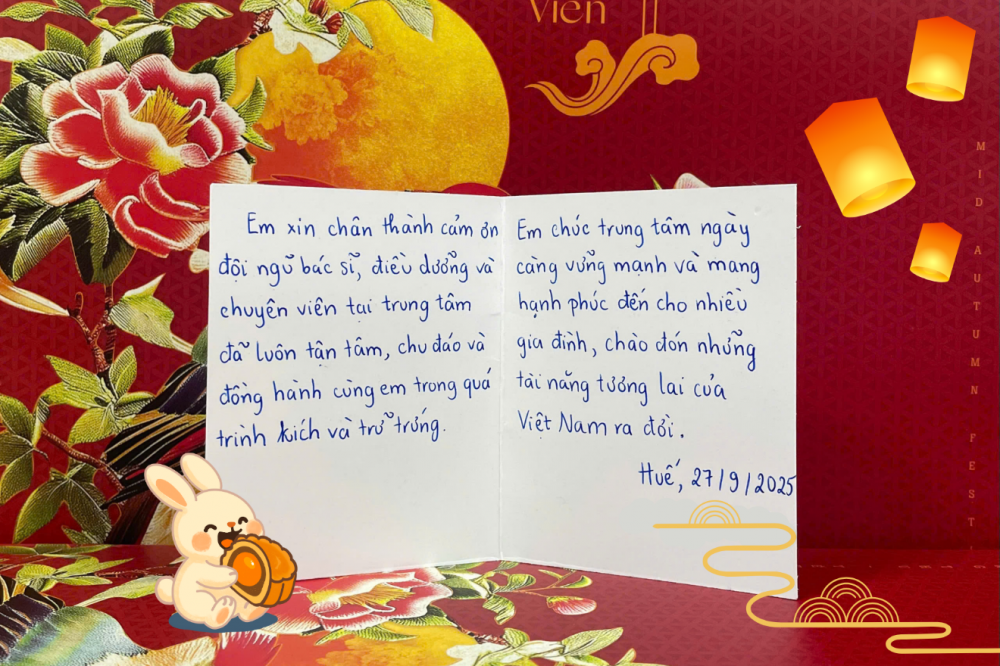 Viên
Em xin chân thành cảm ơn
đội ngũ bác sĩ, điều dưỡng và
chuyên viên tại trung tâm
đã luôn tận tâm, chu đáo và
đồng hành cùng em trong quá
trình kích và trữ trứng.
Em chúc trung tâm ngày
càng vững mạnh và mang
hạnh phúc đến cho nhiều
gia đình, chào đón những
tài năng tương lai của
Việt Nam ra đời.
Huế, 27/9/2025
MID AUTUMN FEST